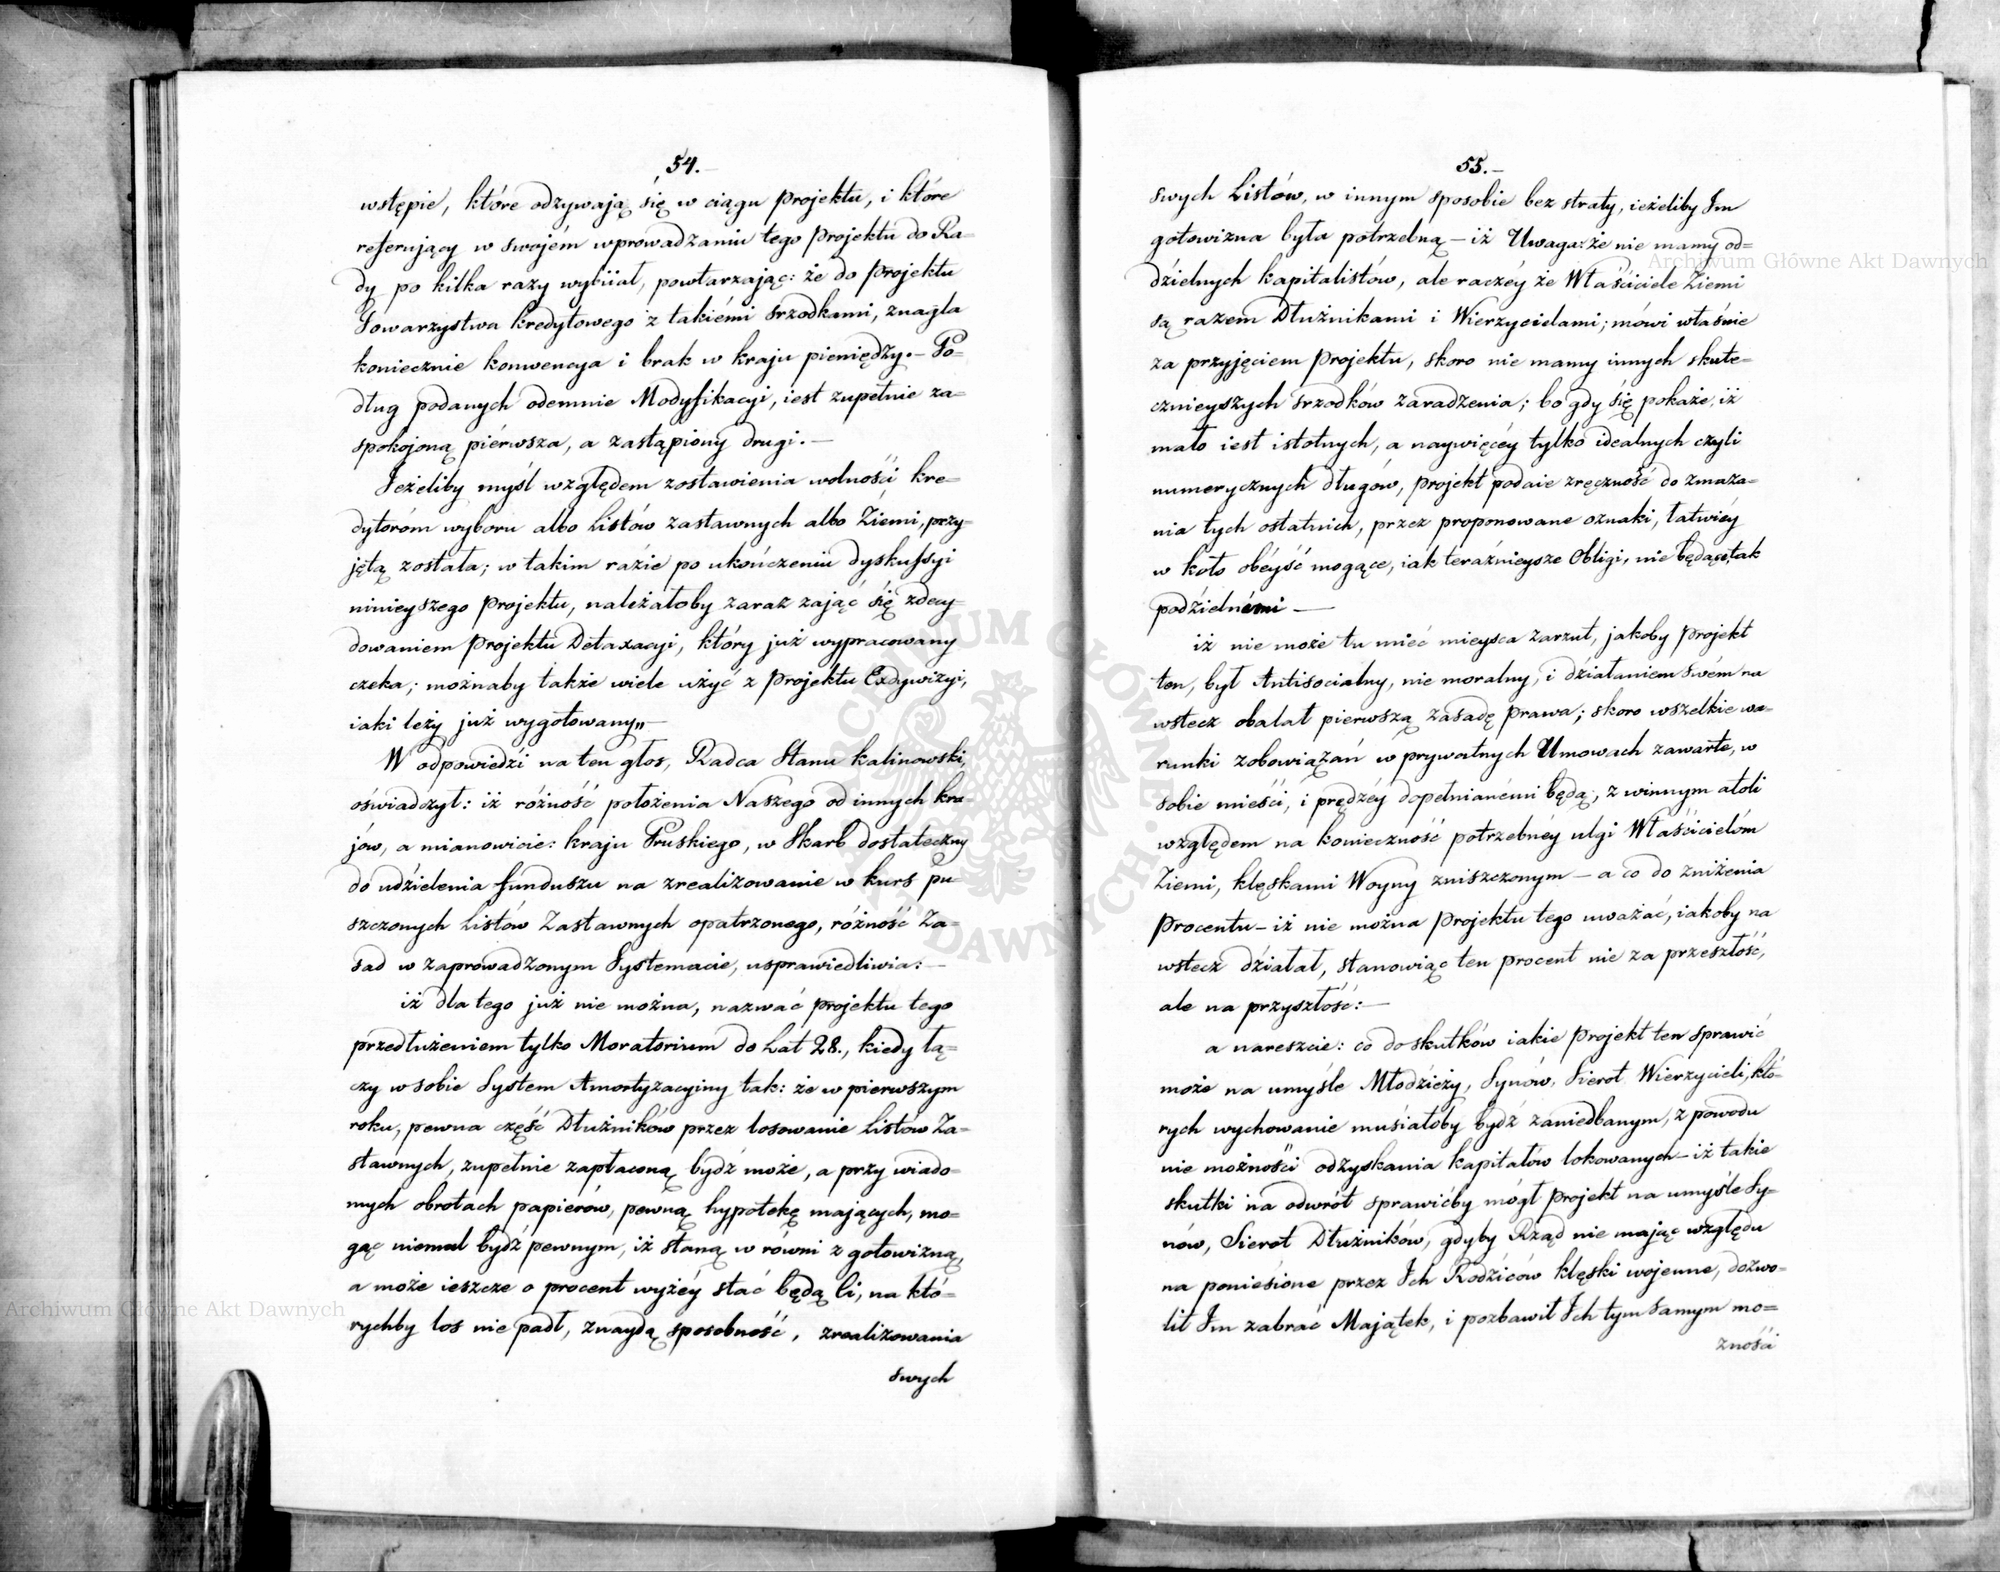 54.
wstępie, które odzywają się w ciągu projektu, i które
referujący w swojém wprowadzaniu tego projektu do Ra=
dy po kilka razy wybiiał, powtarzając: że do projektu
Towarzystwa kredytowego z takiémi srzodkami, znagla
koniecznie konwencya i brak w kraju pieniędzy. - Po=
dług podanych odemnie Modyfikacyi, iest zupełnie za=
spokojoną piérwsza, a zastąpiony drugi. —
Jeżeliby myśl względem zostawienia wolności kre=
dytoróm wyboru albo Listów zastawnych albo Ziemi, przy=
jętą została; w takim razie po ukończeniu dyskussyi
ninieyszego projektu, należałoby zaraz zająć się zdecy=
dowaniem projektu Detaxacyi, który już wypracowany
czeka; możnaby także wiele użyć z projektu Exdywizyi,
iaki leży już wygotowany„ —
W odpowiedzi na ten głos, Radca Stanu Kalinowski,
oświadczył: iż różność położenia Naszego od innych kra=
jów, a mianowicie: kraju Pruskiego, w Skarb dostateczny
do udzielenia funduszu na zrealizowanie w kurs pu=
szczonych Listów Zastawnych opatrzonego, różność Za=
sad w zaprowadzonym Systemacie, usprawiedliwia: —
iż dla tego już nie można, nazwać projektu tego
przedłużeniem tylko Moratorium do Lat 28., kiedy łą=
czy w sobie System Amortyzacyiny tak: że w pierwszym
roku, pewna część Dłużników przez losowanie Listów Za=
stawnych, zupełnie zapłaconą bydź może, a przy wiado=
mych obrotach papierów, pewną hypotekę mających, mo=
gąc niemal bydź pewnym, iż staną w równi z gotowizną,
a może ieszcze o procent wyżéy stać będą ći, na któ=
rychby los nie padł, znaydą sposobność, zrealizowania
swych
55. —
swych Listów, w innym sposobie bez straty, ieżeliby Im
gotowizna była potrzebną — iż Uwaga: że nie mamy od=
dzielnych kapitalistów, ale raczéy że Właściciele Ziemi
są razem Dłużnikami i Wierzycielami; mówi właśnie
za przyjęciem projektu, skoro nie mamy innych skute=
cznieyszych srzodków zaradzenia; bo gdy się pokaże, iż
mało iest istotnych, a naywięcéy tylko idealnych czyli
numerycznych długów, projekt podaie zręczność do zmaza=
nia tych ostatnich, przez proponowane oznaki, łatwiéy
w koło obéyść mogące, iak teraźnieysze Obligi, nie będące, tak
podzielnémi —
iż nie może tu mieć mieysca zarzut, jakoby projekt
ten, był Antisocialny, nie moralny, i działaniem swém na
wstecz obalał pierwszą zasadę prawa; skoro wszelkie wa=
runki zobowiązań w prywatnych Umowach zawarte, w
sobie mieści, i prędzéy dopełnianémi będą, z winnym atoli
względem na konieczność potrzebnéy ulgi Właścicielóm
Ziemi, klęskami Woyny zniszczonym — a co do zniżenia
procentu — iż nie można projektu tego uważać, iakoby na
wstecz działał, stanowiąc ten procent nie za przeszłość,
ale na przyszłość: —
a nareszcie: co do skutków iakie projekt ten sprawić
może na umyśle Młodzieży, Synów, Sierot Wierzycieli, któ=
rych wychowanie musiałoby bydź zaniedbanym, z powodu
nie możności odzyskania kapitałów lokowanych — iż takie
skutki na odwrót sprawićby mógł projekt na umyśle Sy=
nów, Sierot Dłużników, gdyby Rząd nie mając względu
na poniesione przez Ich Rodziców klęski wojenne, dozwo=
lił Im zabrać Majątek, i pozbawił Ich tym samym mo=
zności
Archiwum Główne Akt Dawnych
Archiwum Główne Akt Dawnych
ARCHIWUM GŁÓWNE AKT DAWNYCH